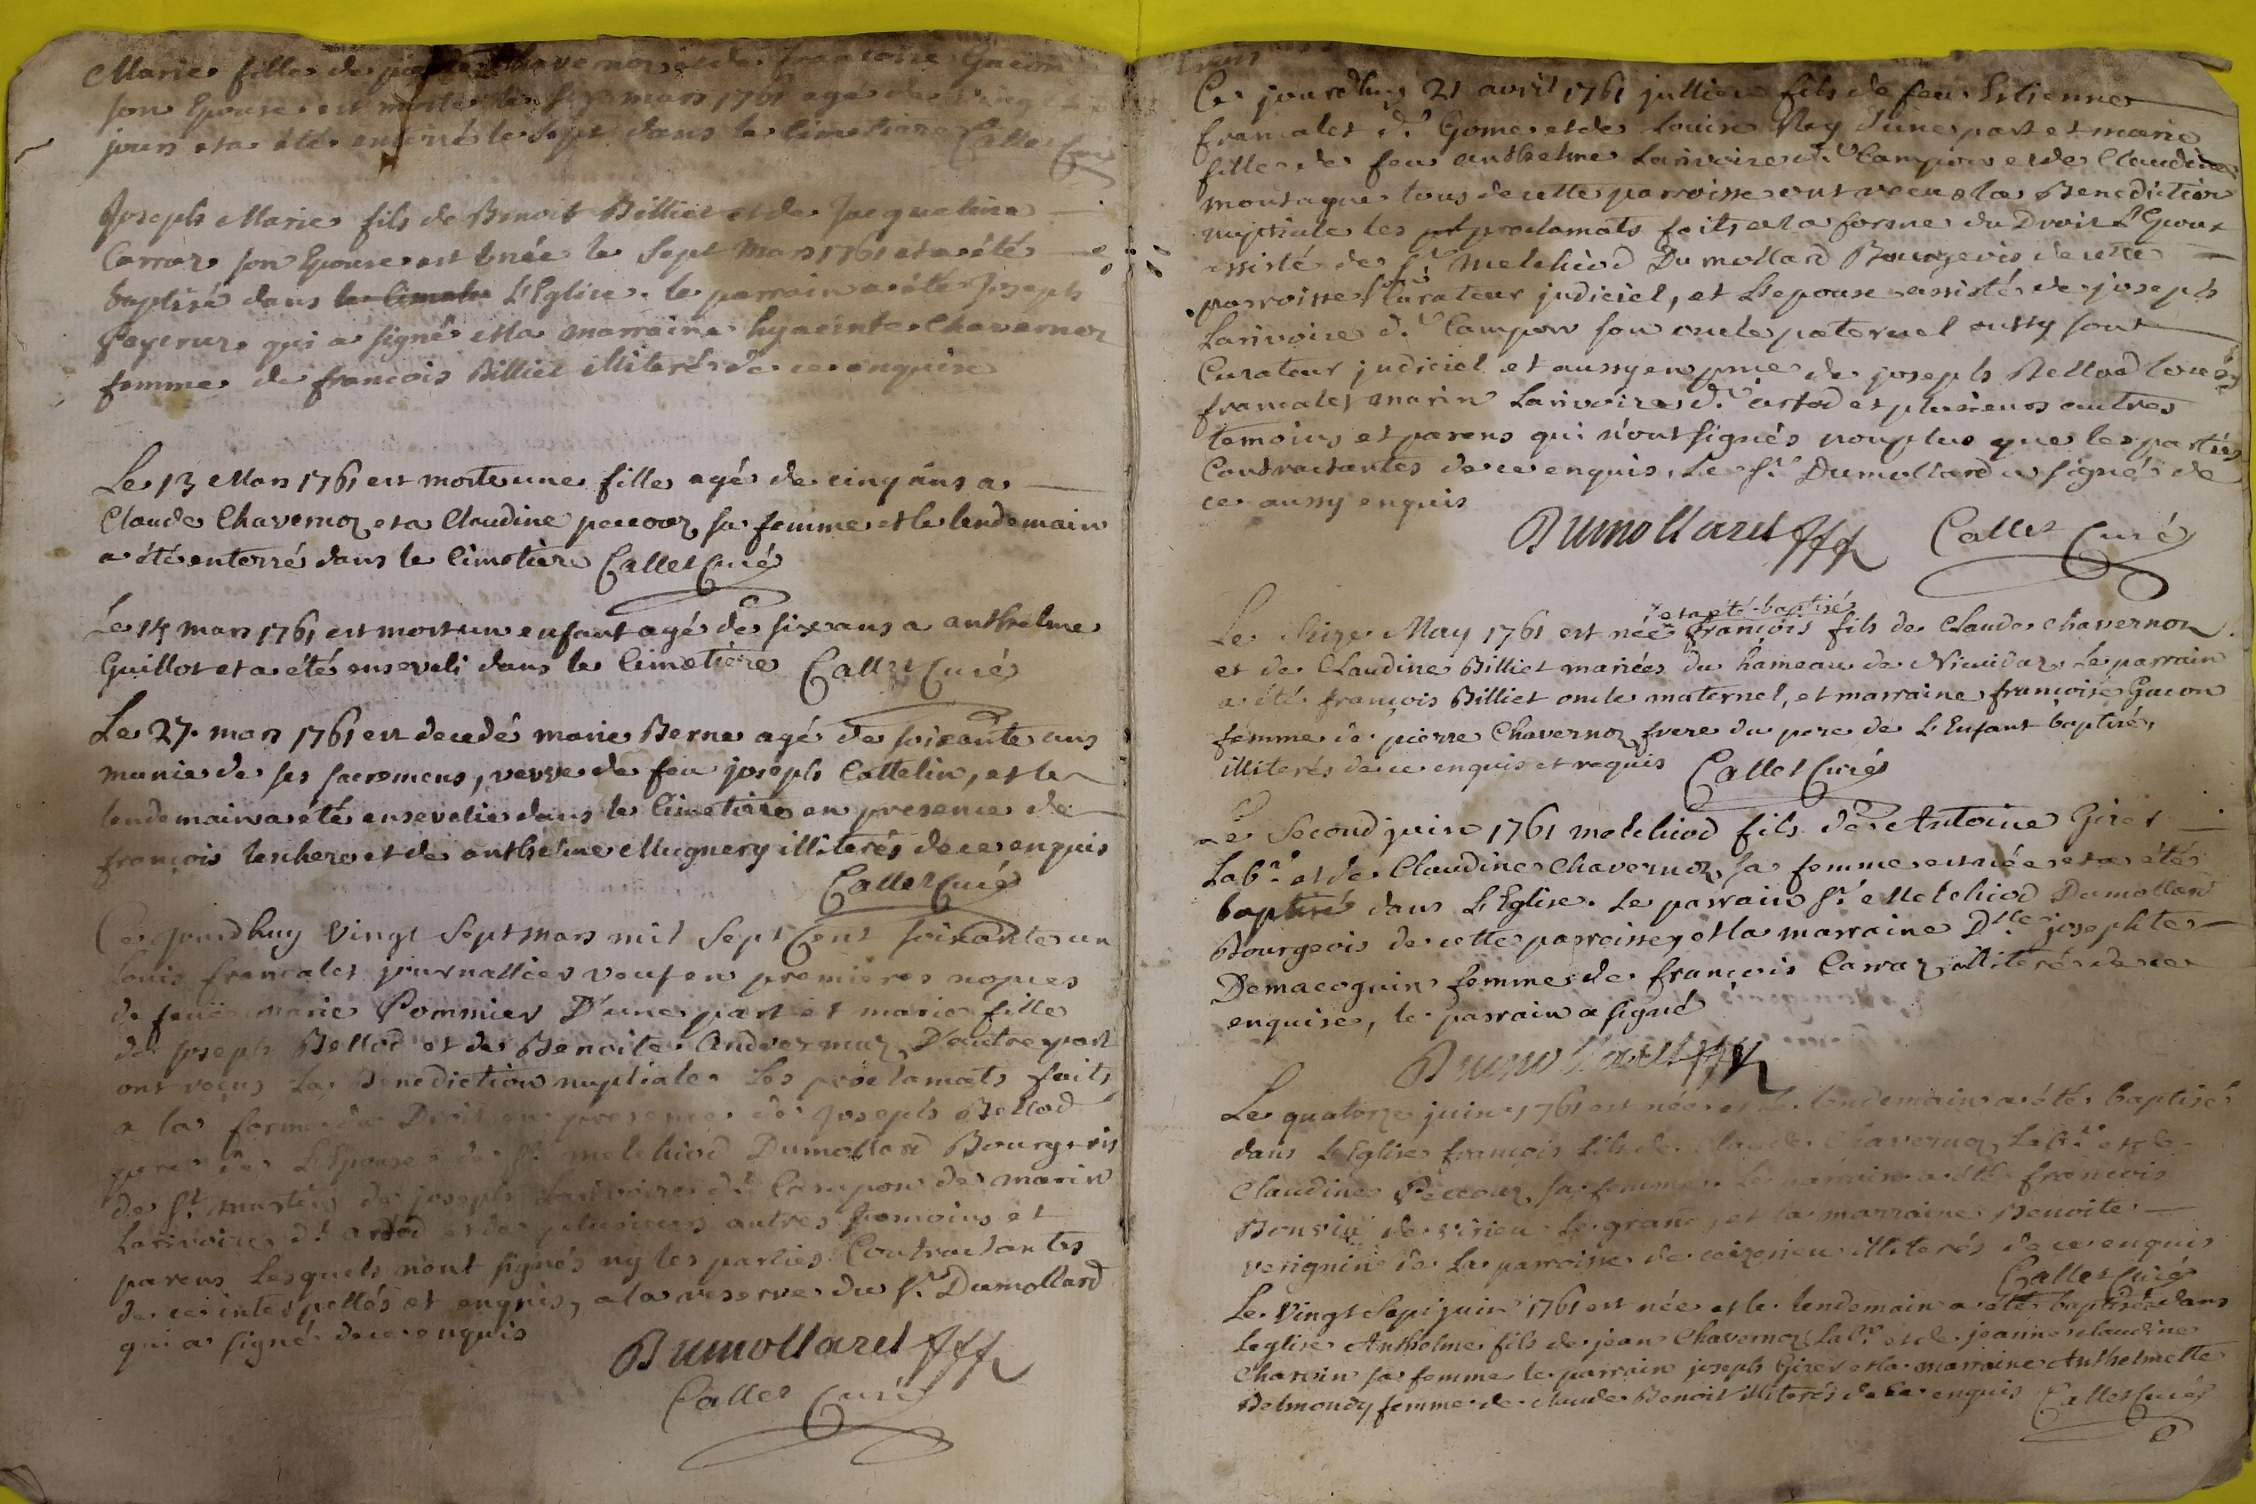 Marie fille de pierre Chavernoz et de francoise Gucon
son Epouse est morte le six mars 1761 agé de vingt
jours et a été enterré le sept dans le Cimetiere Callet Curé
Joseph Marie fils de Benoit Billiet et de Jacqueline
Carraz son Epouse est née le sept Mars 1761 et a été
baptisé dans le Cimetie L'Eglise. le parrain a été Joseph
qui a signé et la marraine hyacinte Chavernoz
femme de francois Billiet illiteré de ce enquise
Le 13 Mars 1761 est morte une fille agé de cinq ans a
Claude Chavernoz et a Claudine peccouz sa femme et le lendemain
a été enterré dans le Cimetière Callet Curé
Le 14 mars 1761 est mort un enfant agé de six ans a anthelme
Guillot et a été enseveli dans le Cimetière Callet Curé
Le 27. mars 1761 est decedé marie Berne agé de soixante ans
munie de ses sacremens, veuve de feu joseph Cattelin, et le
lendemain a été ensevelie dans le Cimetière en presence de
françois et de anthelme Mugnery illiterés de ce enquis
Callet Curé
Ce jourdhuy vingt sept mars mil sept Cent soixante un
Louis francalet journallier veuf en premieres nopces
de feue marie Pommier D'une part et marie fille
de joseph Bellod et de Benoite Andvermuz D'autre part
ont reçus La Benediction nuptiale Les proclamats faits
a la forme du Droit en presence de Joseph Bellod
pere de L'Epouse de Sr. melchiod Dumollard Bourgeois
de St. de joseph Larivoire dt. Campon de marin
Larivoire dt. artod et de plusieurs autres temoins et
parens Lesquels n'ont signés ny les parties Contractantes
de ce interpellés et enquis, a la reserve du Sr. Dumollard
qui a signé de ce enquis
Dumollard
Callet Curé
Ce jourdhuy 21 avril 1761 jullien fils de feu Estienne
francalet dt. Gome et de Louise Rey d'une part et marie
fille de feu anthelme Larivoire dt. Campon et de Claudine
montagne tous de cette parroisse ont recus la Benediction
nuptiale les proclamats faits a la forme du Droit L'Epoux
assisté de Sr. Melchiod Dumollard Bourgeois de cette
parroisse son Curateur judiciel, et L'epouse assisté de joseph
Larivoire dt. Campon son oncle paternel aussy sont
Curateur judiciel et aussy en pnce de joseph Bellod Louis
francalet marin Larivoire dt. artod et plusieurs autres
temoins et parens qui n'ont signés nonplus que les parties
Contractantes de ce enquis, Le Sr. Dumollard a signé de
ce aussy enquis
Dumollard Callet Curé
et a été baptisé
Le seize May 1761 est née françois fils de Claude chavernoz
et de Claudine Billiet mariées du hameau de Le parrain
a été françois Billiet oncle maternel, et marraine françoise Gucon
femme de pierre Chavernoz frere du pere de L'Enfant baptisé,
illiterés de ce enquis et requis Callet Curé
Le Second juin 1761 melchiod fils de Antoine Giret
Labr. et de Claudine Chavernoz sa femme est née et a été
baptisé dans L'Eglise. Le parrain Sr. Melchiod Dumollard
Bourgeois de cette parroisse, et la marraine Dlle. josephte
Demacoguin femme de françois Carraz illiteré de ce
enquise, le parrain a signé
Dumollard
Le quatorze juin 1761 est née et le lendemain a été baptisé
dans L'Eglise françois fils de Claude Chavernoz Labr. et de
Claudine Peccouz sa femme. Le parrain a été francois
de virieu le grand, et la marraine Benoite
verignin de La parroisse de ceizerieu illiterés de ce enquis
Callet Curé
Le Vingt Sept juin 1761 est née et le lendemain a été baptisé dans
leglise Anthelme fils de jean Chavernoz Labr. et de jeanne claudine
Charvin sa femme le parrain joseph Giret et la marraine Anthelmette
Belmondy femme de claude Benoit illiterés de ce enquis Callet Curé